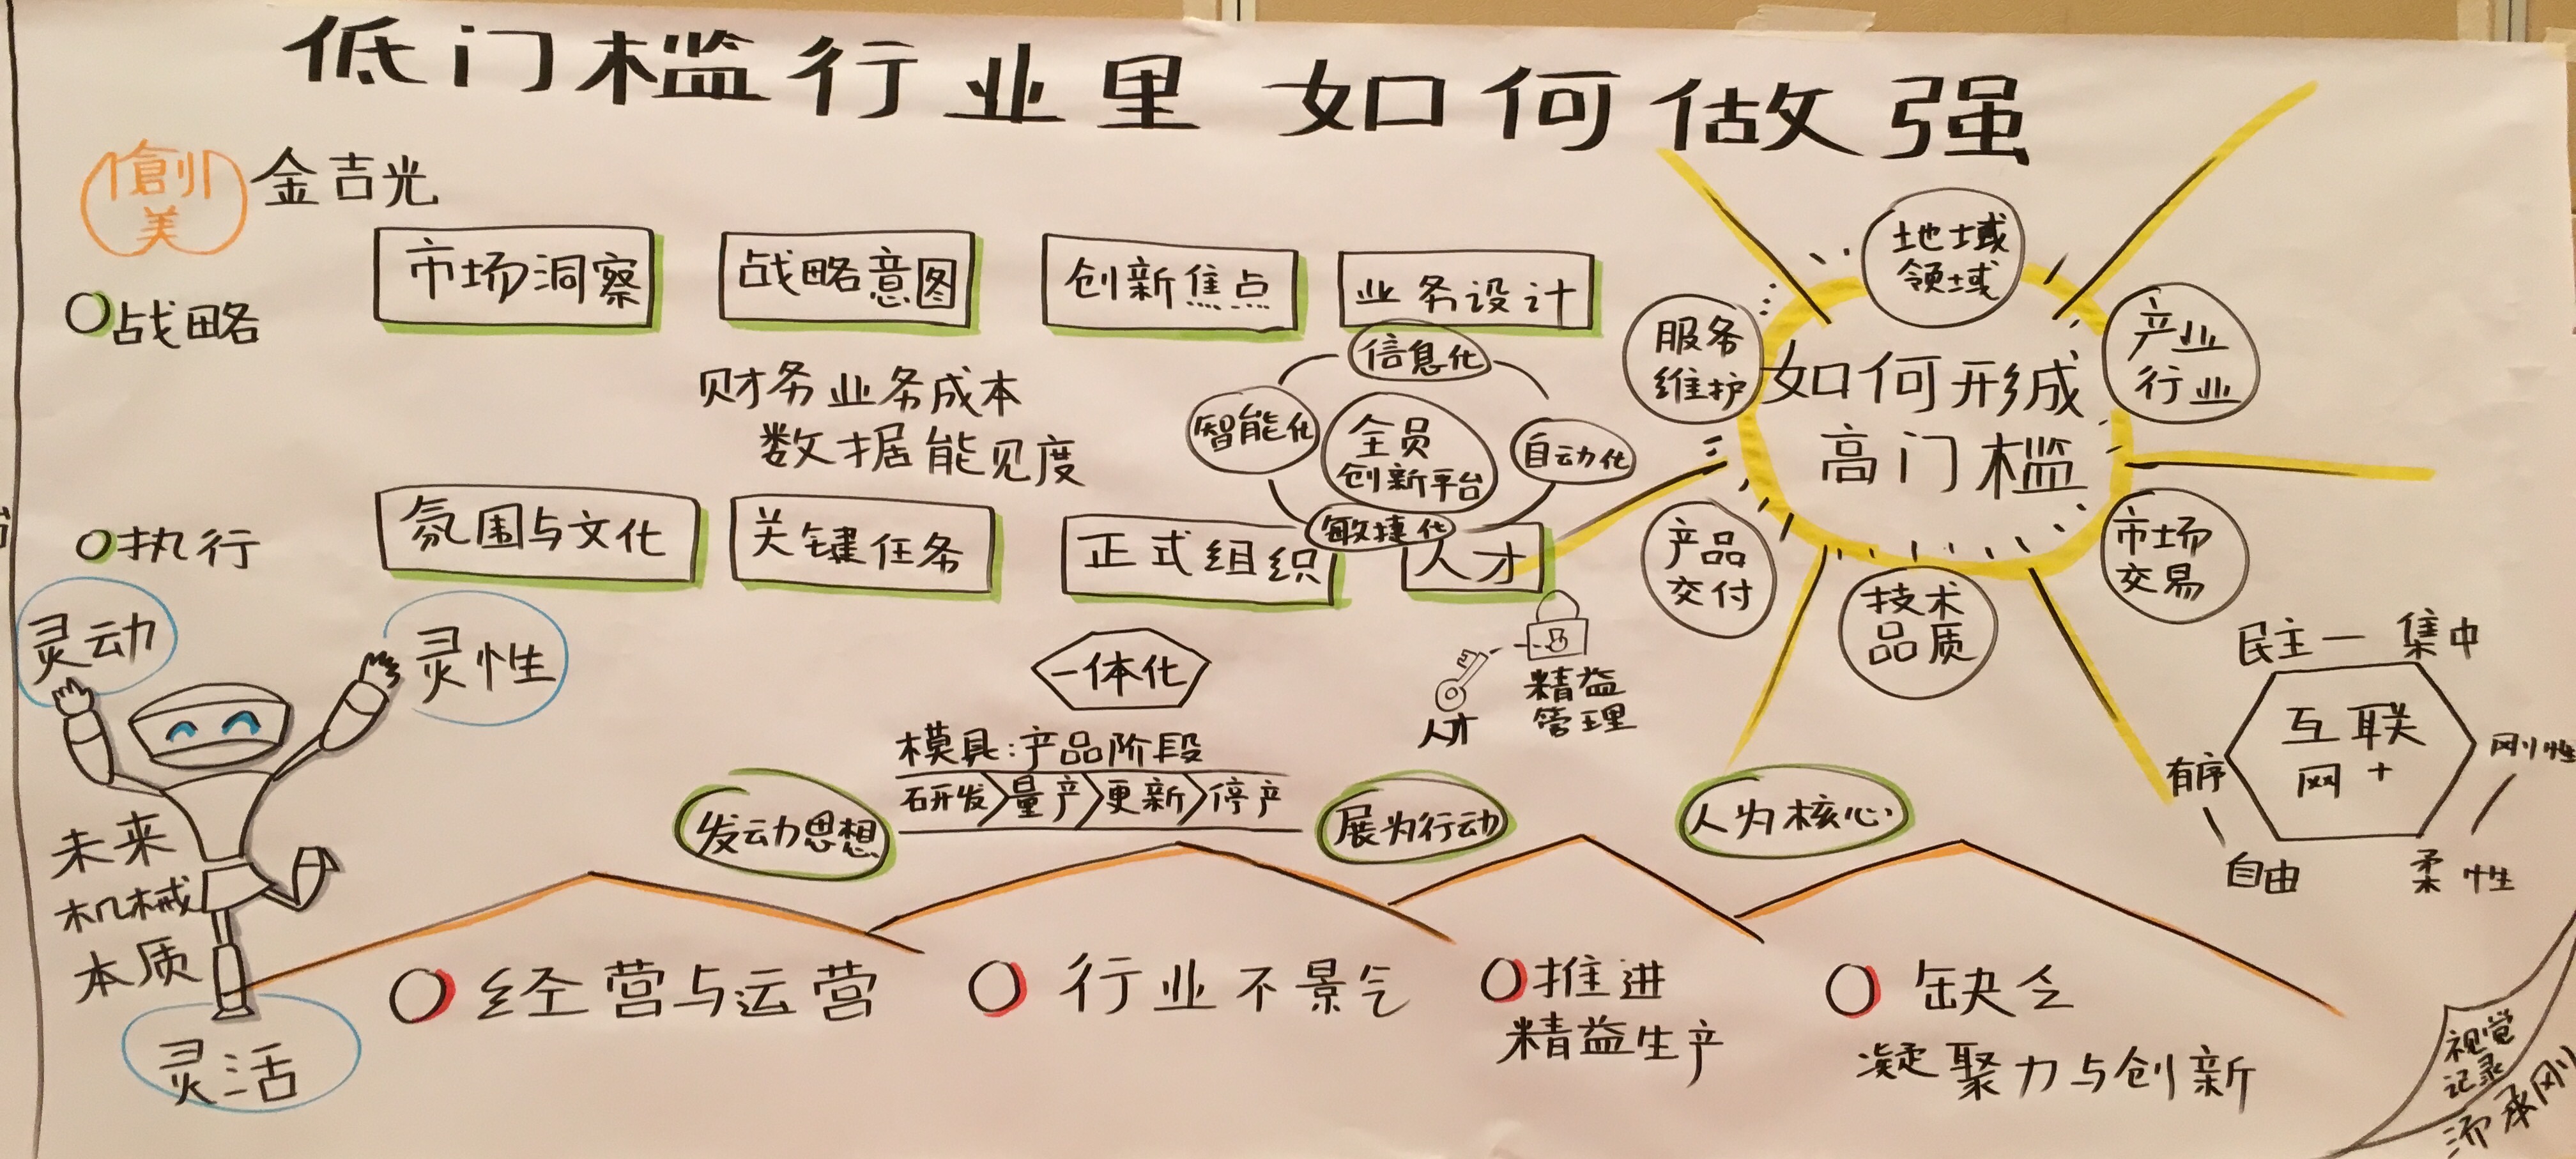 低门槛行业里 如何做强
創美
金吉光
战略
市场洞察
战略意图
创新焦点
业务设计
财务业务成本
数据能见度
信息化
智能化
全员
创新平台
自动化
敏捷化
执行
氛围与文化
关键任务
正式组织
人才
如何形成
高门槛
地域
领域
产业
行业
市场
交易
技术
品质
产品
交付
服务
维护
灵动
灵性
未来
机械
本质
灵活
一体化
模具:产品阶段
研发
量产
更新
停产
人才
精益
管理
发动思想
展为行动
人为核心
民主一集中
互联
网+
刚性
柔性
有序
自由
经营与运营
行业不景气
推进
精益生产
缺乏
凝聚力与创新
视觉
记录